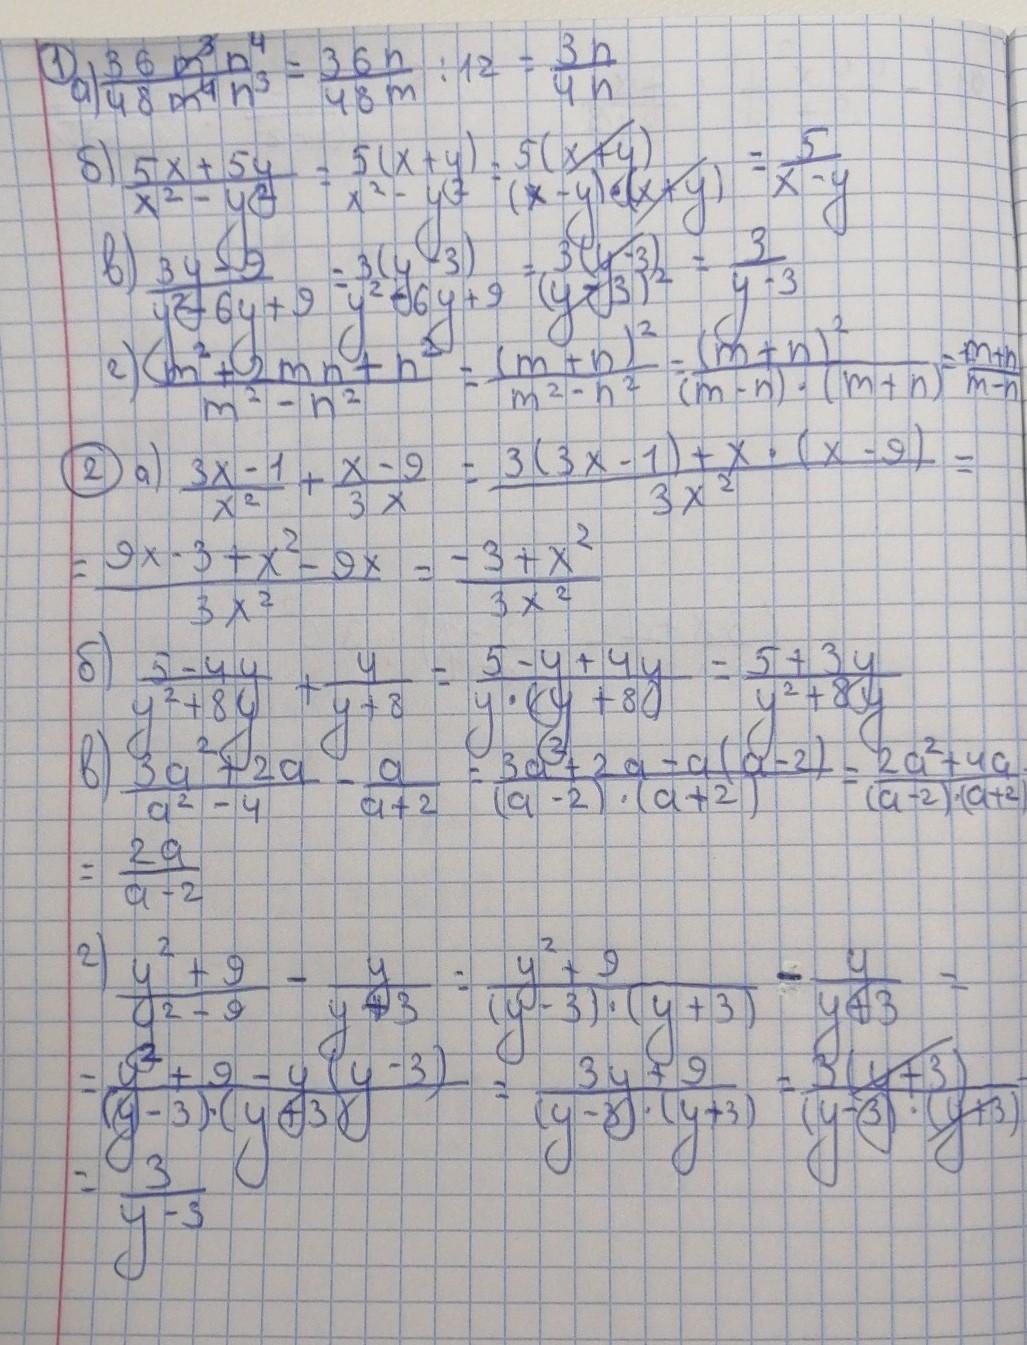 ① а) 36 m³ n⁴ / 48 m⁴ n³ = 36n / 48m : 12 = 3n / 4n
б) 5x + 5y / x² - y² = 5(x + y) / x² - y² = 5(x+y) / (x - y)·(x+y) = 5 / x - y
в) 3y - 9 / y² - 6y + 9 = 3(y - 3) / y² - 6y + 9 = 3(y - 3) / (y - 3)² = 3 / y - 3
г) (m² + 2mn + n² / m² - n² = (m+n)² / m² - n² = (m+n)² / (m - n)·(m + n) = m+n / m-n
② а) 3x - 1 / x² + x - 9 / 3x = 3(3x - 1) + x·(x - 9) / 3x² =
= 9x - 3 + x² - 9x / 3x² = -3 + x² / 3x²
б) 5 - 4y / y² + 8y + y / y+8 = 5 - y + 4y / y·(y + 8) = 5 + 3y / y² + 8y
в) 3a² + 2a / a² - 4 - a / a+2 = 3a² + 2a - a(a - 2) / (a - 2)·(a+2) = 2a² + 4a / (a - 2)·(a+2)
= 2a / a - 2
г) y² + 9 / y² - 9 - y / y+3 = y² + 9 / (y - 3)·(y + 3) - y / y+3 =
= y² + 9 - y(y - 3) / (y - 3)·(y+3) = 3y + 9 / (y - 3)·(y+3) = 3(y + 3) / (y - 3)·(y+3) =
= 3 / y - 3